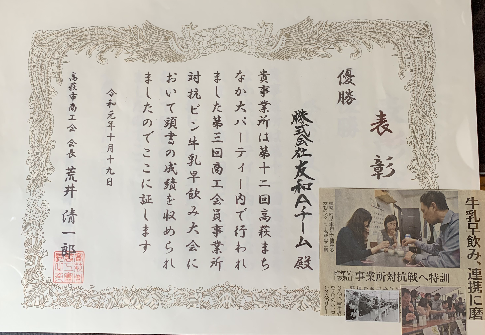 表彰
優勝
株式会社友和Aチーム殿
貴事業所は第十二回高萩まち
なか大パーティー内で行われ
ました第三回商工会員事業所
対抗ビン牛乳早飲み大会に
おいて頭書の成績を収められ
ましたのでここに証します
令和元年十月十九日
高萩市商工会 会長 荒井清一郎
牛乳早飲み、連携に磨
事業所対抗戦へ特訓